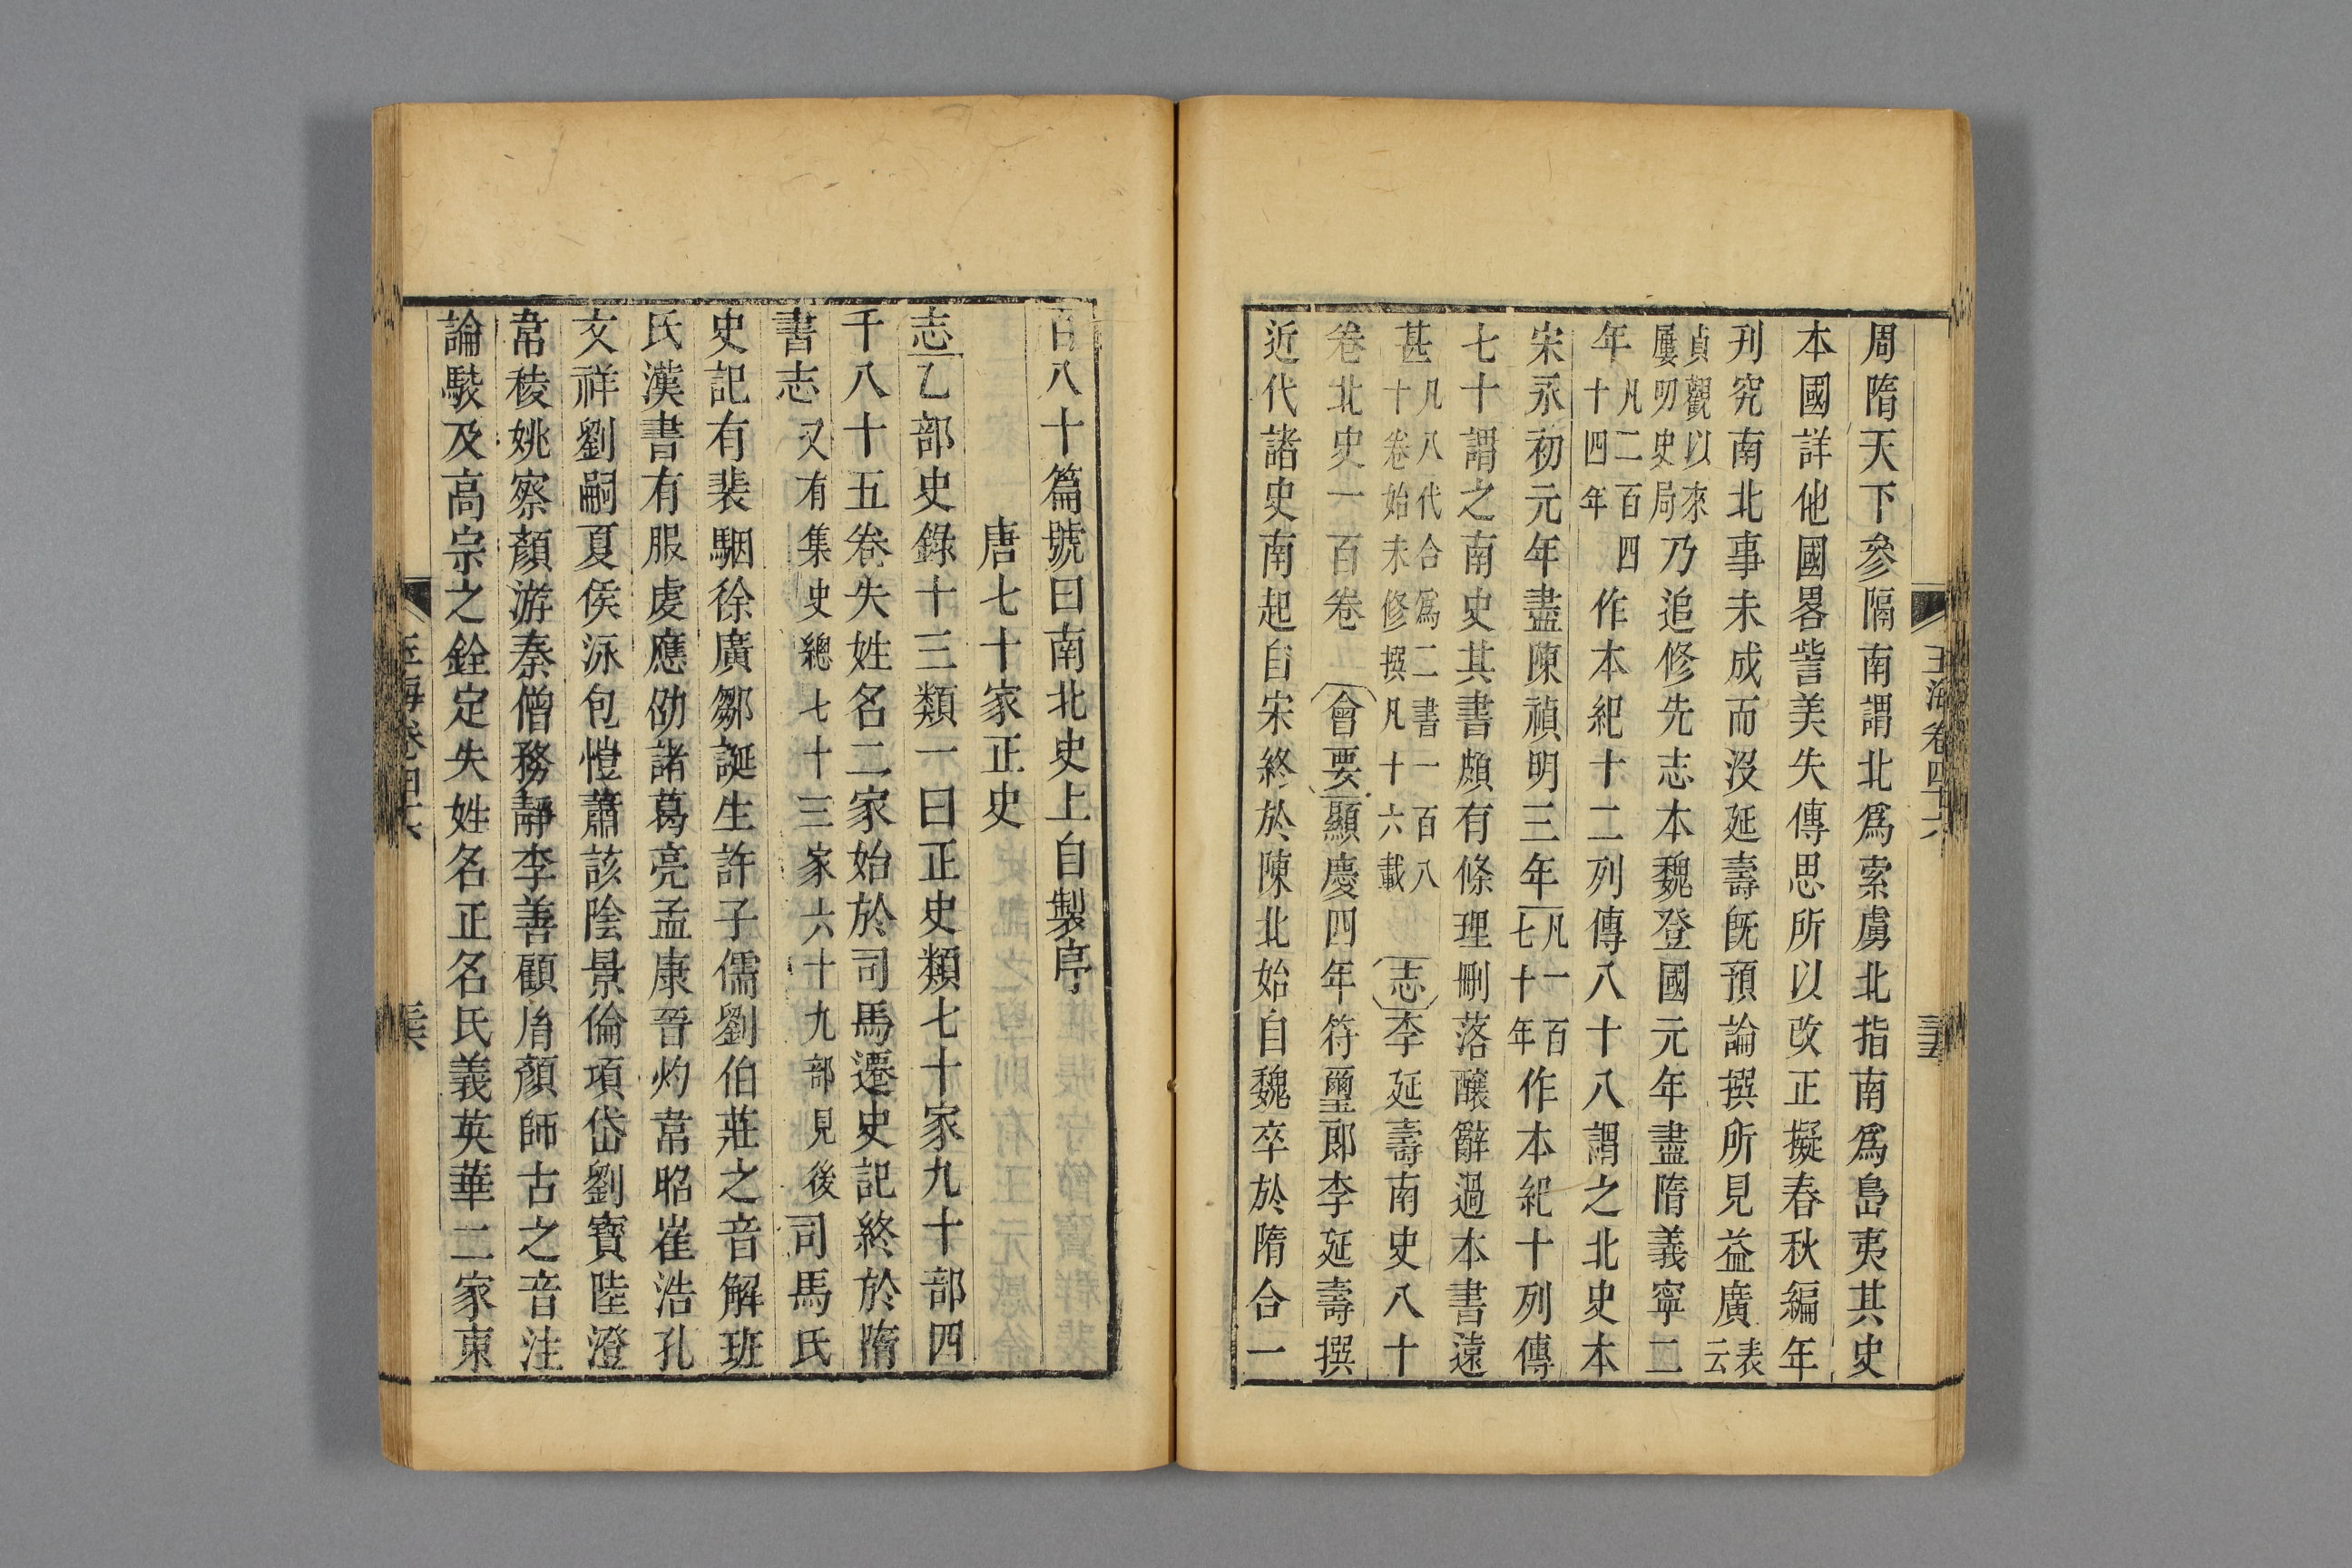 周隋天下參隔南謂北爲索虜北指南爲島夷其史
本國詳他國畧訾美失傳思所以改正擬春秋編年
刊究南北事未成而沒延壽旣預論撰所見益廣表云
貞觀以來屢叨史局乃追修先志本魏登國元年盡隋義寧二
年凡二百四十四年作本紀十二列傳八十八謂之北史本
宋永初元年盡陳禎明三年凡一百七十年作本紀十列傳
七十謂之南史其書頗有條理刪落釀辭過本書遠
甚凡八代合爲二書一百八十卷始末修撰凡十六載志李延壽南史八十
卷北史一百卷會要顯慶四年符璽郎李延壽撰
近代諸史南起自宋終於陳北始自魏卒於隋合一
玉海卷四十六
百八十篇號曰南北史上自製序
唐七十家正史
志乙部史錄十三類一曰正史類七十家九十部四
千八十五卷失姓名二家始於司馬遷史記終於隋
書志又有集史總七十三家六十九部見後司馬氏
史記有裴駰徐廣鄒誕生許子儒劉伯莊之音解班
氏漢書有服虔應劭諸葛亮孟康晉灼韋昭崔浩孔
文祥劉嗣夏侯泳包愷蕭該陰景倫項岱劉寶陸澄
韋稜姚察顏游秦僧務靜李善顧胤顏師古之音注
論駮及高宗之銓定失姓名正名氏義英華二家東
玉海卷四十六